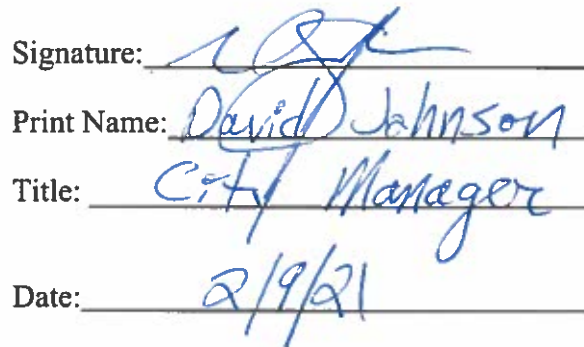 Signature:
Print Name: David Johnson
Title: City Manager
Date: 2/9/21